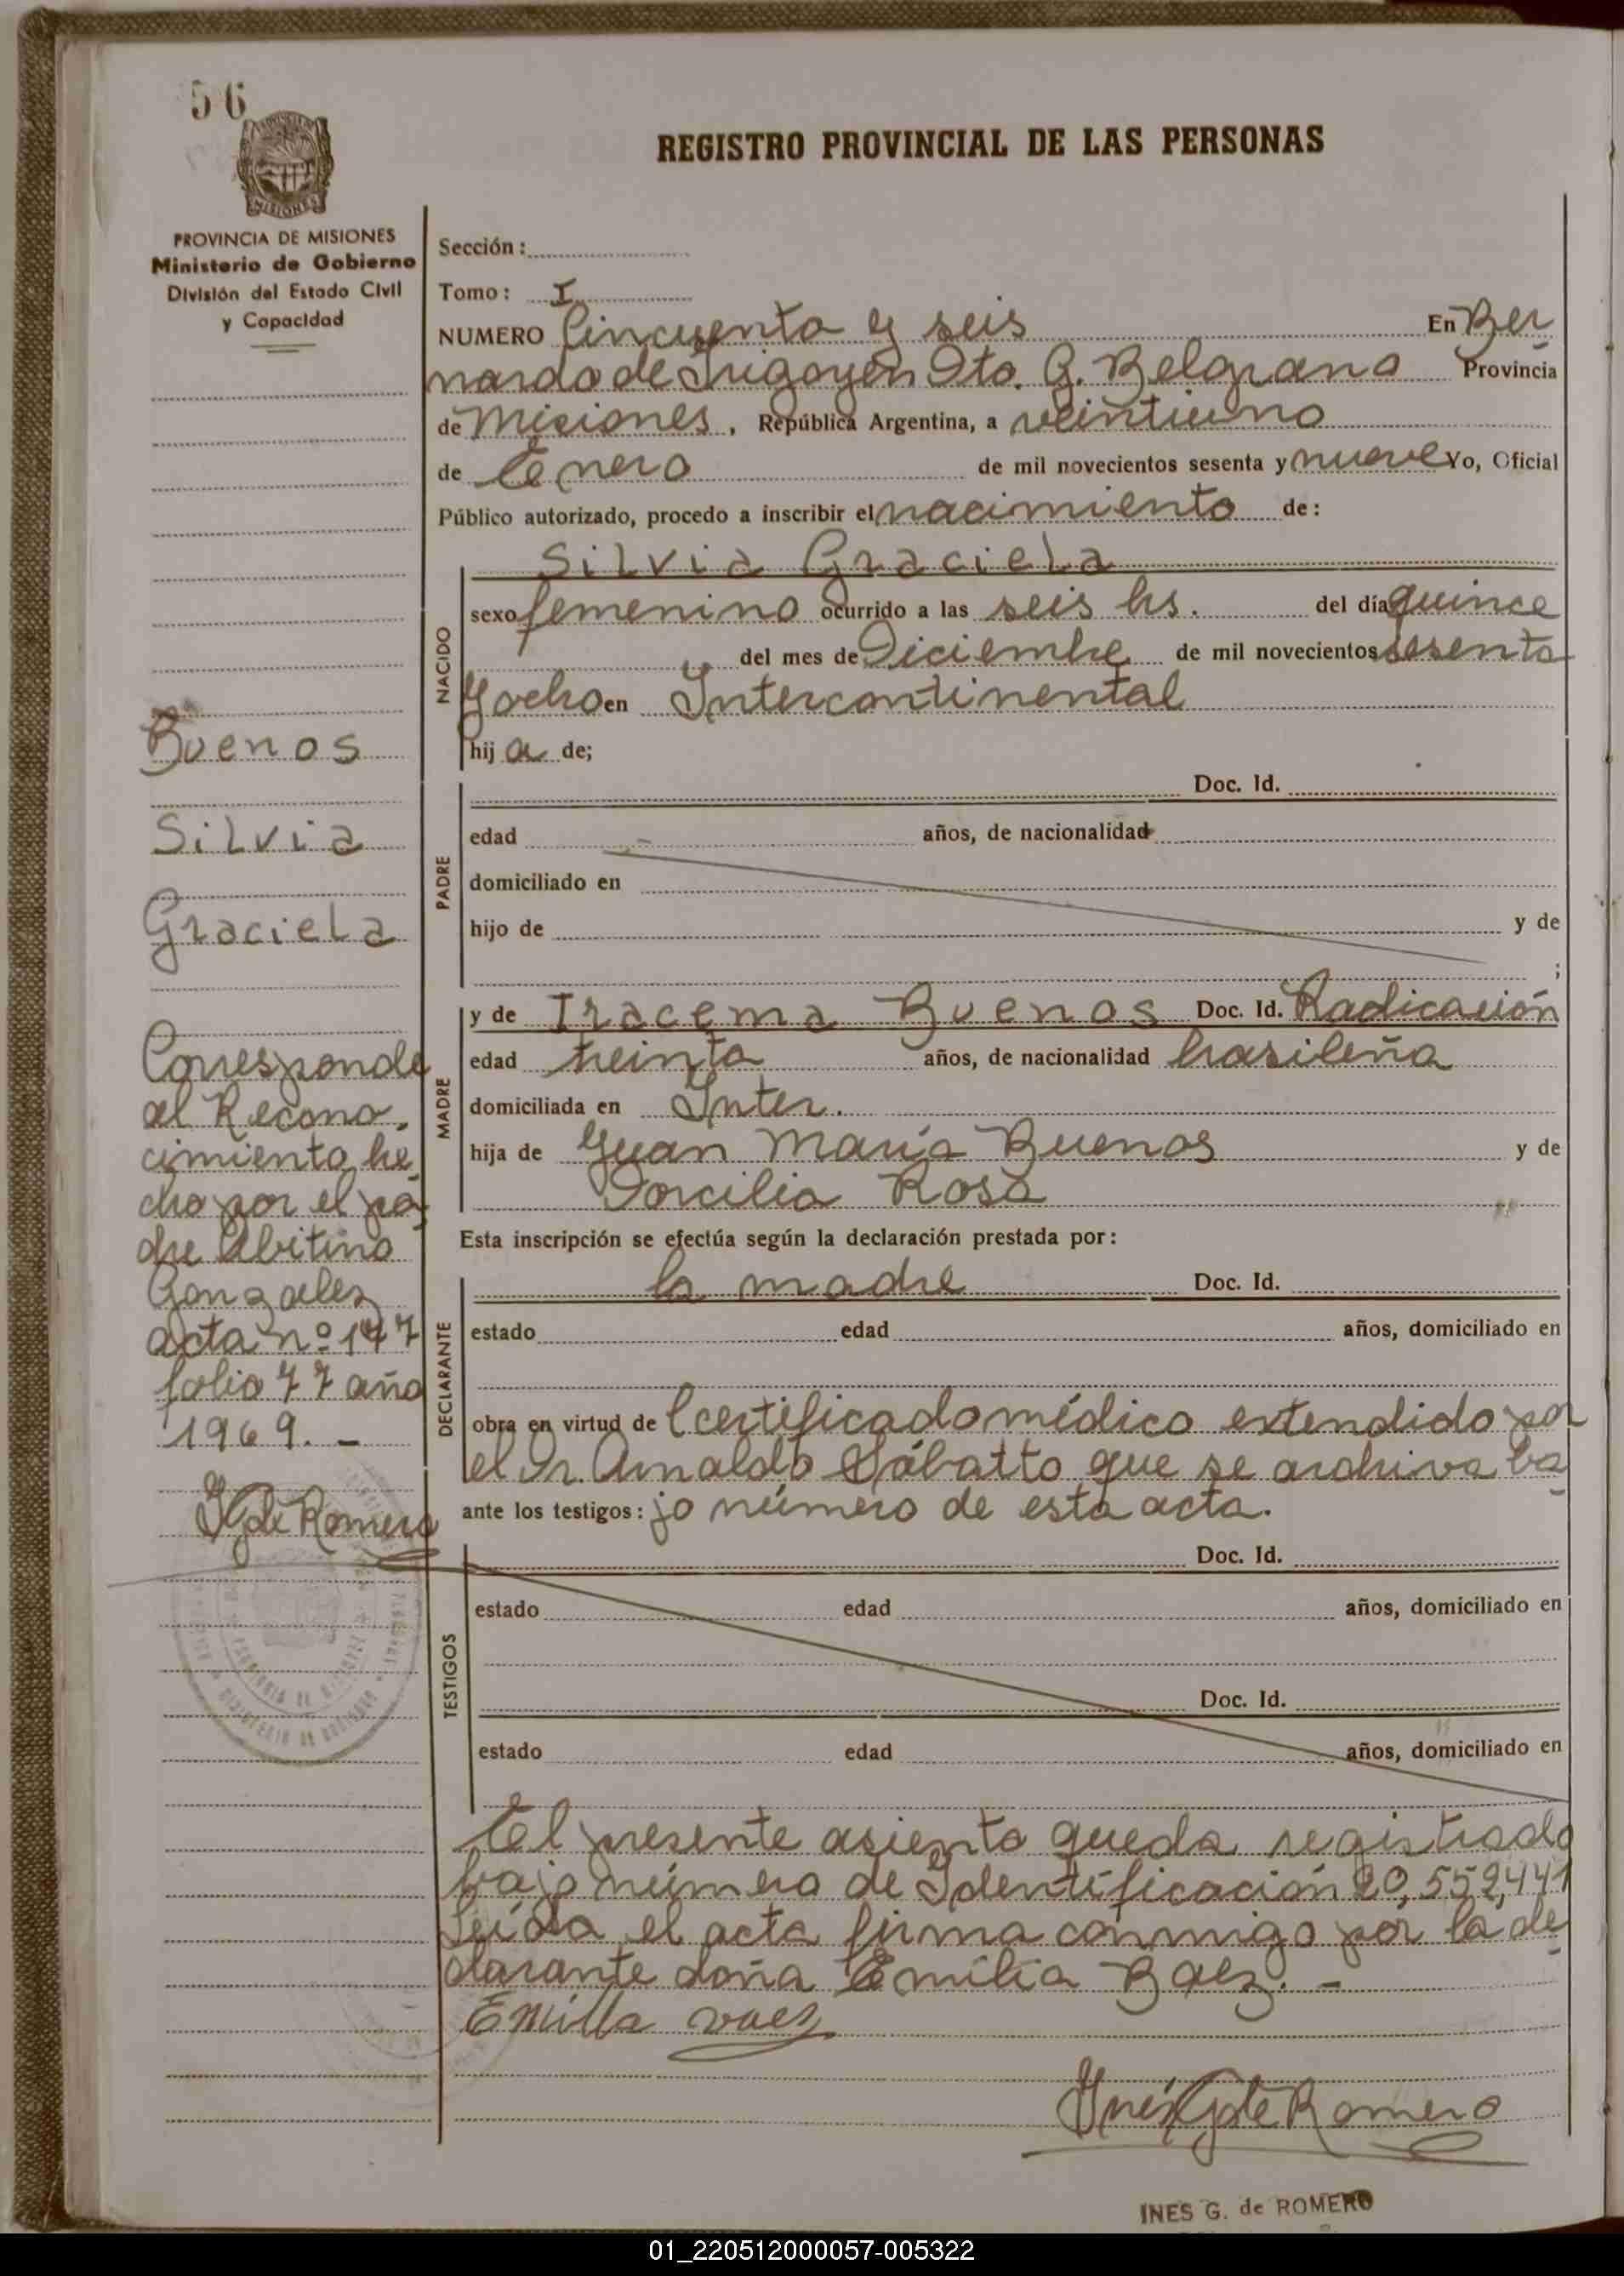 56
REGISTRO PROVINCIAL DE LAS PERSONAS
MISIONES
PROVINCIA DE MISIONES
Ministerio de Gobierno
División del Estado Civil
y Capacidad
Sección:
Tomo: I
NUMERO Cincuenta y seis En Ber
nardo de Irigoyen Dto. G. Belgrano Provincia
de Misiones, República Argentina, a veintiuno
de Enero de mil novecientos sesenta y nueve Yo, Oficial
Público autorizado, procedo a inscribir el nacimiento de:
Silvia Graciela
NACIDO
sexo femenino ocurrido a las seis hs. del día quince
del mes de Diciembre de mil novecientos sesenta
y ocho en Intercontinental
hij a de;
Buenos
Silvia
Graciela
PADRE
Doc. Id.
edad años, de nacionalidad
domiciliado en
hijo de y de
;
MADRE
y de Iracema Buenos Doc. Id. Radicación
edad treinta años, de nacionalidad brasileña
domiciliada en Inter.
hija de Juan María Buenos y de
Dorcilia Rosa
Corresponde
al Recono,
cimiento he
cho por el pa
dre Albitino
Gonzalez
acta nº 147
folio 77 año
1969. -
IGde Romero
Esta inscripción se efectúa según la declaración prestada por:
DECLARANTE
la madre Doc. Id.
estado edad años, domiciliado en
obra en virtud de Ccertificado médico extendido por
el Dr. Arnaldo Sábatto que se archiva ba
ante los testigos: jo número de esta acta.
TESTIGOS
Doc. Id.
estado edad años, domiciliado en
Doc. Id.
estado edad años, domiciliado en
El presente asiento queda registrado
bajo número de Identificación 20,552,441
Leída el acta firma conmigo por la de
clarante doña Emilia Baez. -
Emilia vaez
Inés Gde Romero
INES G. de ROMERO
01_220512000057-005322